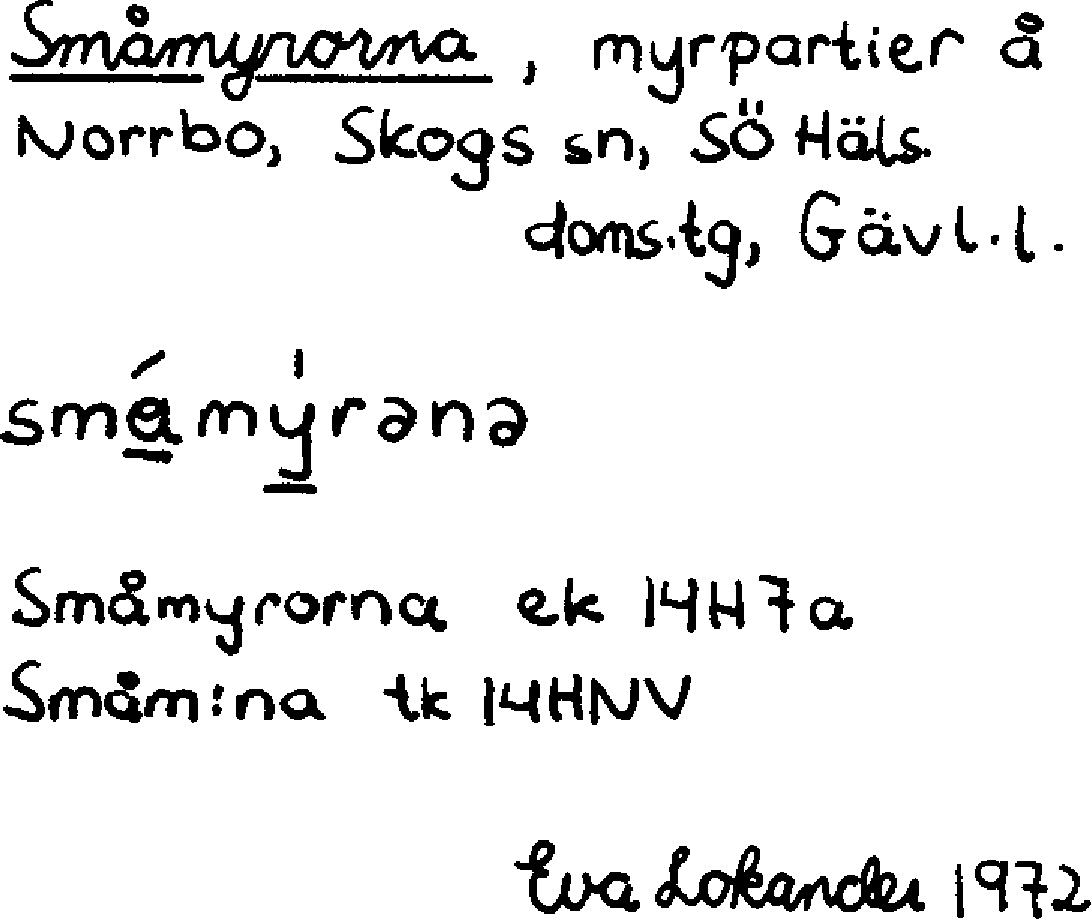 Småmyrorna, myrpartier å
Norrbo, Skogs sn, SÖ Häls.
doms.tg, Gävl.l.
smá̱mý̱rənə
Småmyrorna ek 14H7a
Småm:na tk 14HNV
Eva Lokander 1972